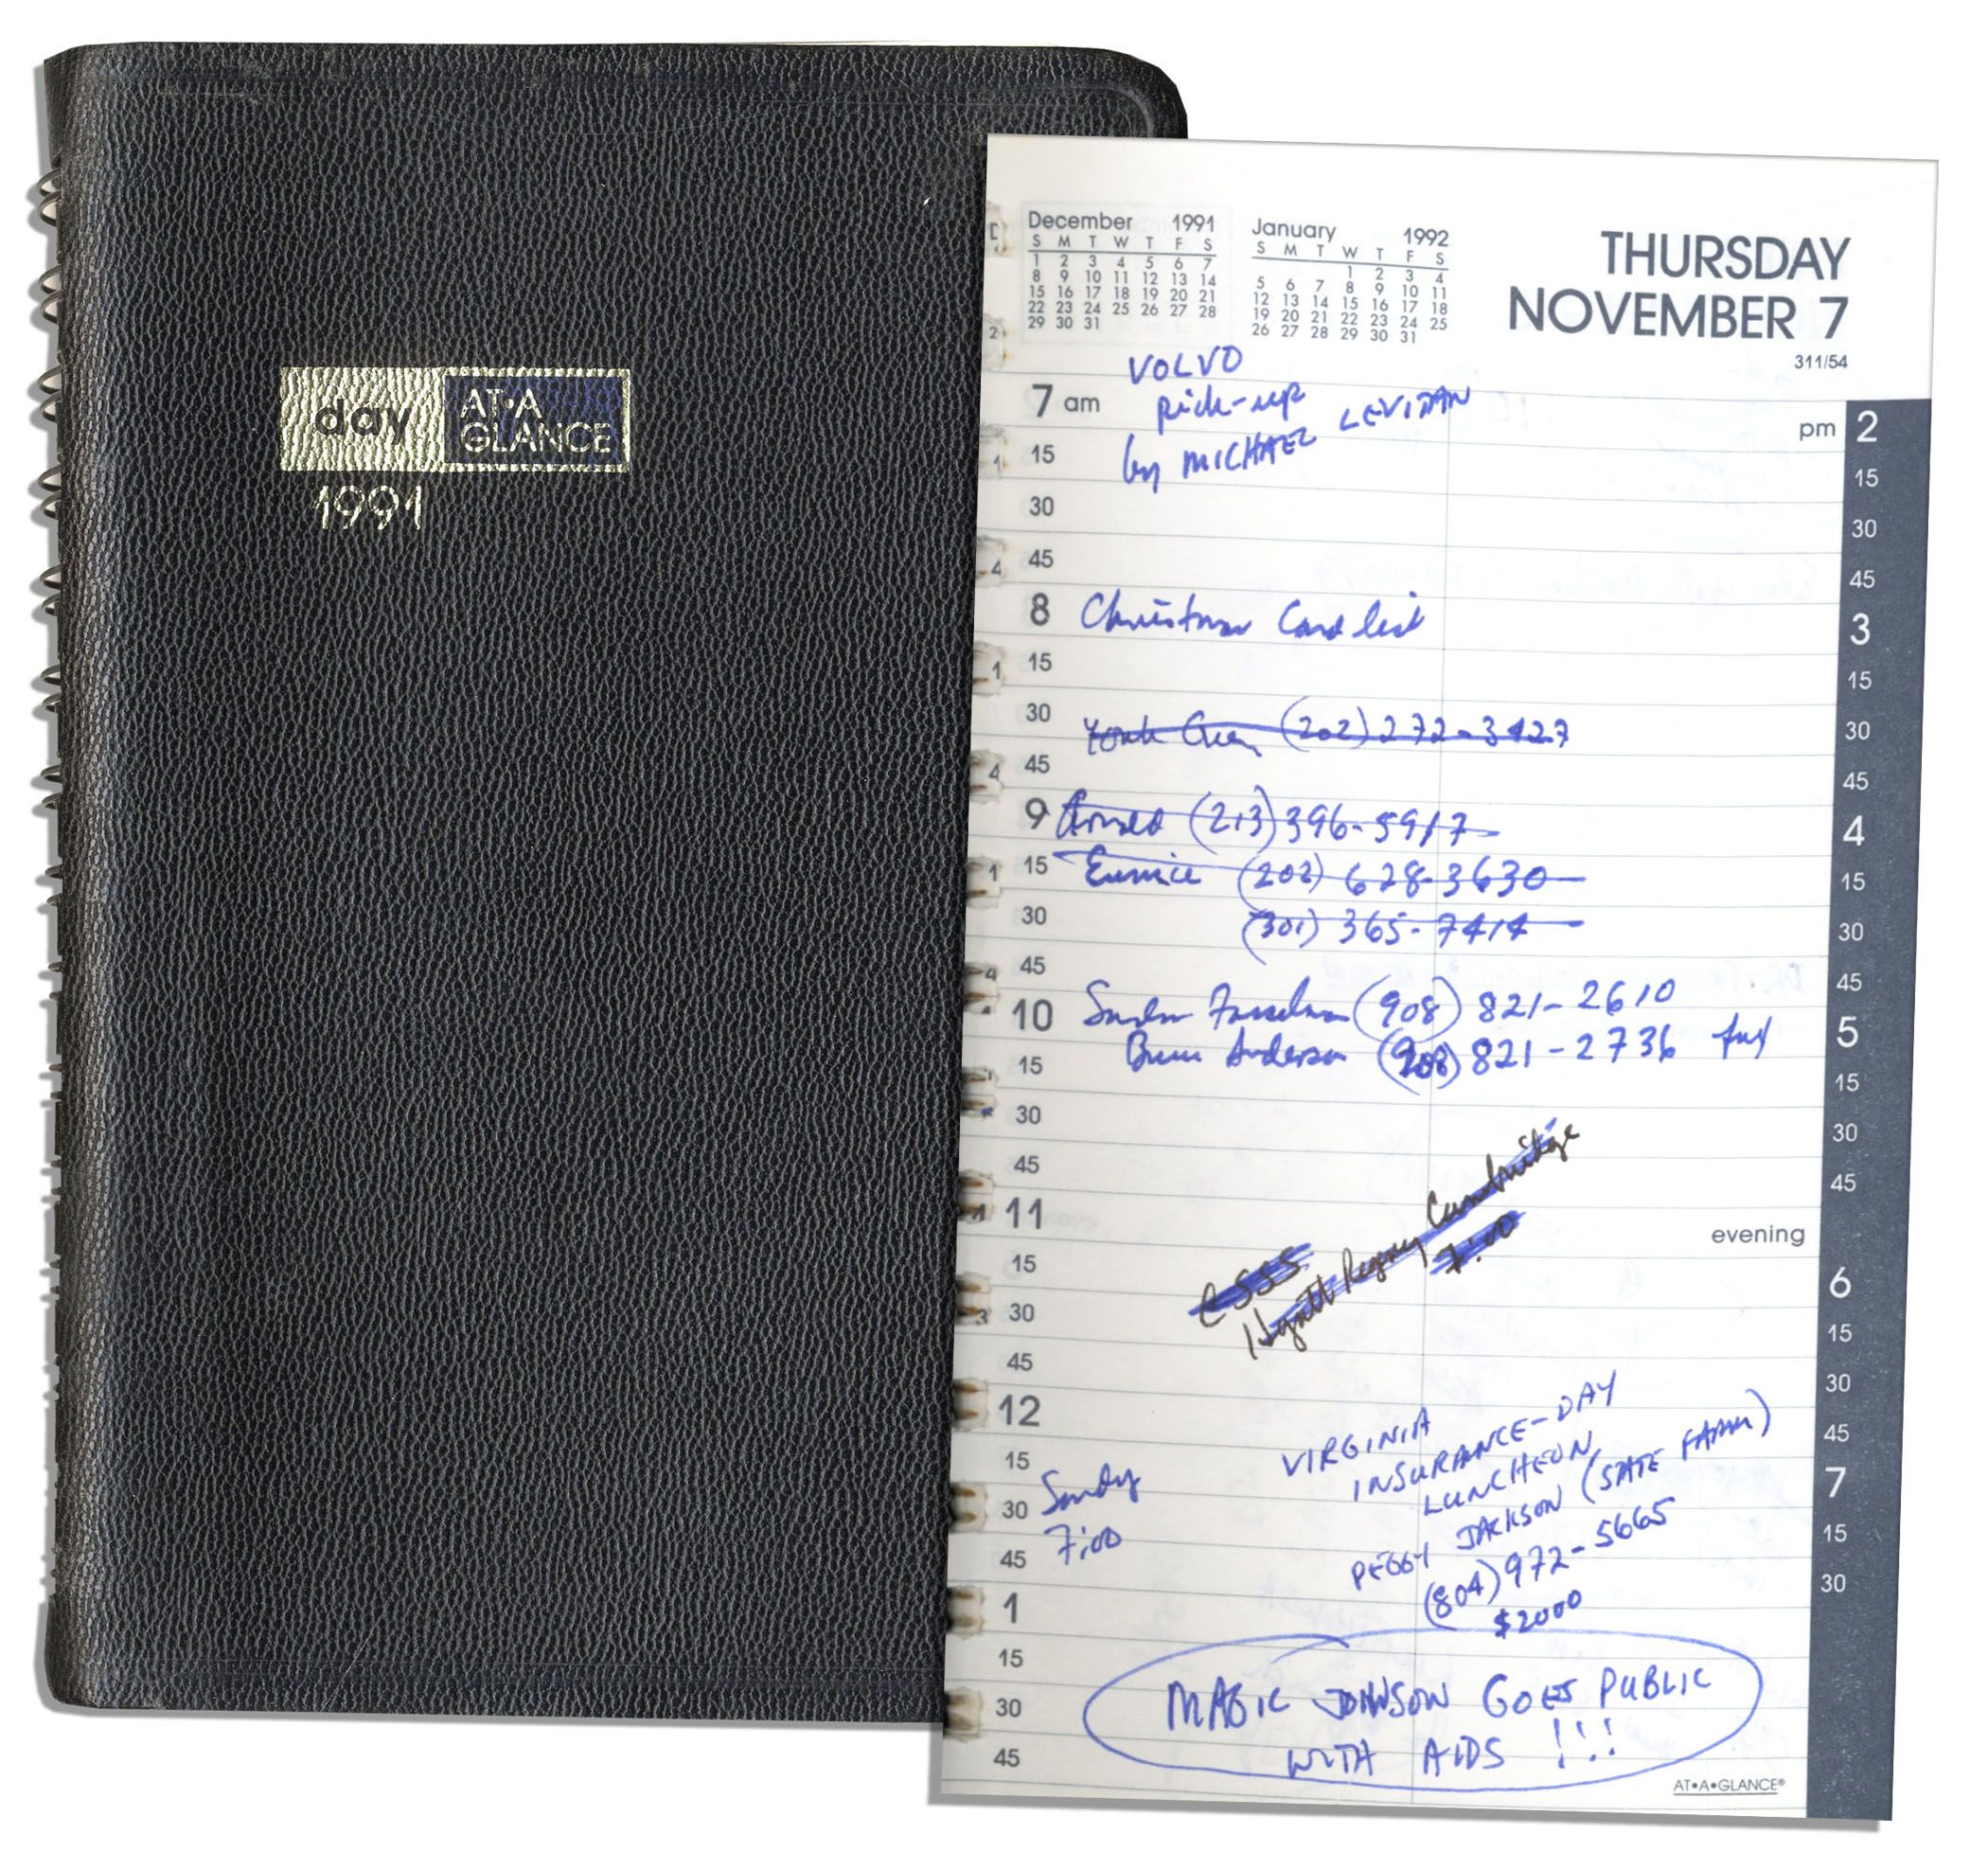 day AT•A
GLANCE
1991
December 1991
S M T W T F S
1 2 3 4 5 6 7
8 9 10 11 12 13 14
15 16 17 18 19 20 21
22 23 24 25 26 27 28
29 30 31
January 1992
S M T W T F S
1 2 3 4
5 6 7 8 9 10 11
12 13 14 15 16 17 18
19 20 21 22 23 24 25
26 27 28 29 30 31
THURSDAY
NOVEMBER 7
311/54
VOLVO
pick-up
by MICHAEL LEVITAN
7 am
15
30
45
8 Christmas Card list
15
30 (202) 272-3423
45
9 Arnold (213) 396-5917
15 Eunice (202) 628-3630
30 (301) 365-7414
45
10 (908) 821-2610
Anderson (908) 821-2736 fax
15
30
45
11
15
30
45
CSSS
Hyatt Regency Cambridge
7:00
12
15
30 Sandy
7:00
45
1
15
30
45
VIRGINIA
INSURANCE-DAY
LUNCHEON
PEGGY JACKSON (STATE FARM)
(804) 972-5665
$2000
MAGIC JOHNSON GOES PUBLIC
WITH AIDS !!!
pm 2
15
30
45
3
15
30
45
4
15
30
45
5
15
30
45
evening
6
15
30
45
7
15
30
AT•A•GLANCE®